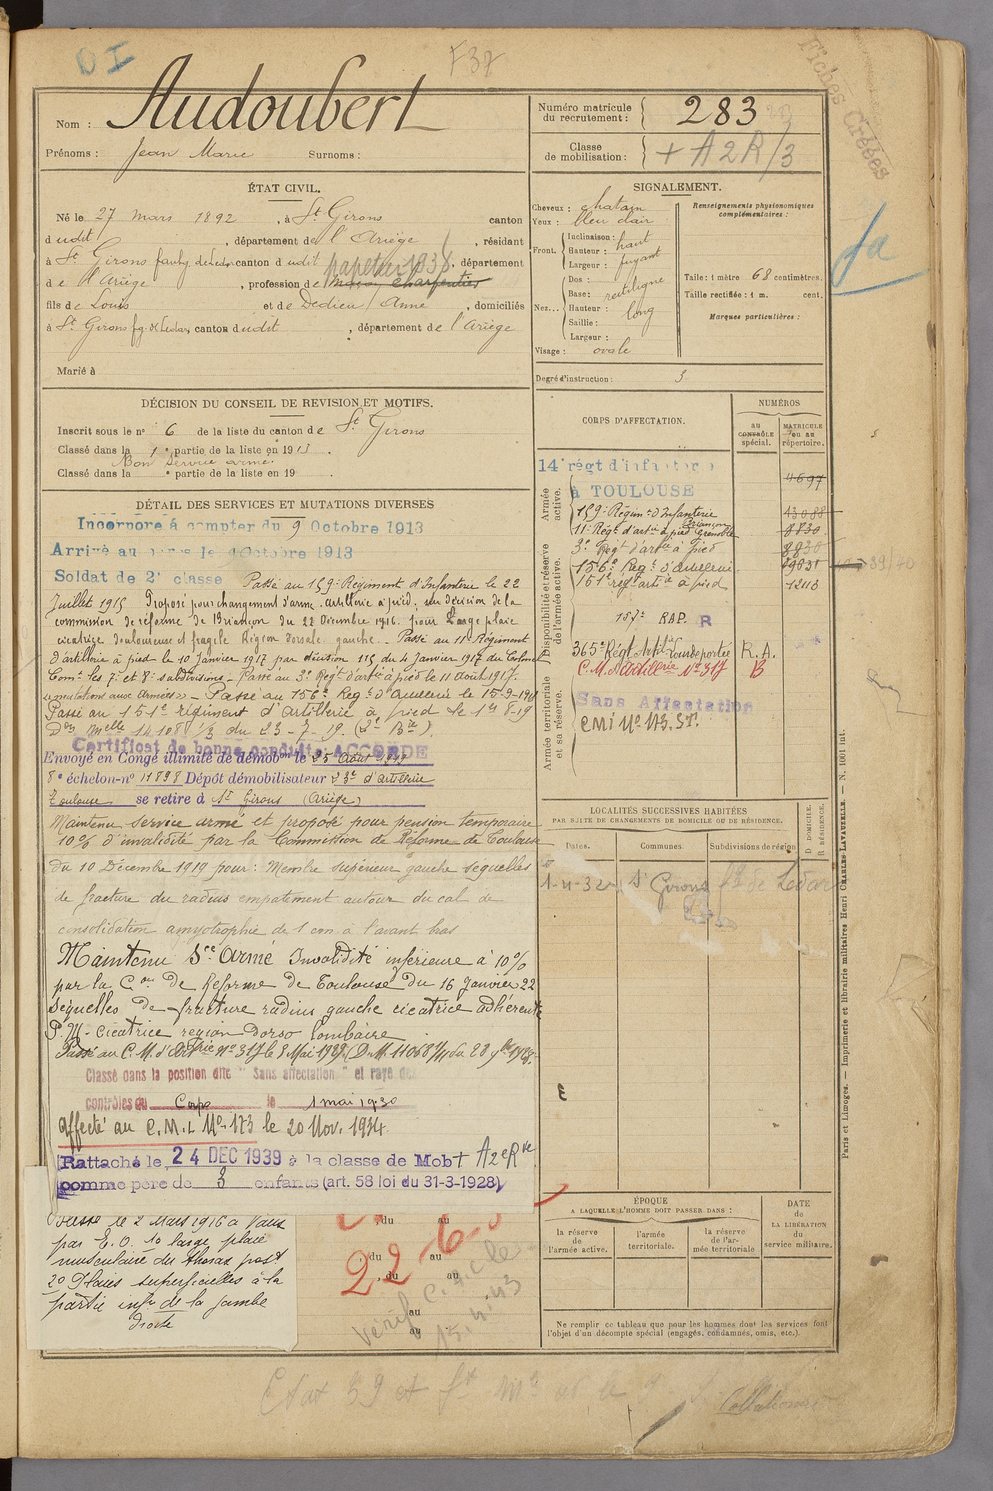 D I
F37
Fiches Créées
Nom : Audoubert
Prénoms : Jean Marie Surnoms :
Numéro matricule du recrutement : 283
Classe de mobilisation : + A2R/3
fa
ÉTAT CIVIL.
Né le 27 mars 1892, à St Girons canton
dudit, département de l'Ariège, résidant
à St Girons canton dudit papetier 1938, département
de l'Ariège, profession de charpentier
fils de Louis et de Dedieu Anne, domiciliés
à St Girons canton dudit, département de l'Ariège
Marié à
SIGNALEMENT.
Cheveux : chatain
Yeux : bleu clair
Front. Inclinaison :
Hauteur : haut
Largeur : fuyant
Nez... Dos :
Base : rectiligne
Hauteur :
Saillie : long
Largeur :
Visage : ovale
Renseignements physionomiques complémentaires :
Taille : 1 mètre 68 centimètres.
Taille rectifiée : 1 m. cent.
Marques particulières :
Degré d'instruction : 3
DÉCISION DU CONSEIL DE REVISION ET MOTIFS.
Inscrit sous le n° 6 de la liste du canton de St Girons
Classé dans la 1e partie de la liste en 1913.
Bon service armé.
Classé dans la e partie de la liste en 19 .
CORPS D'AFFECTATION.
NUMÉROS
au contrôle spécial.
MATRICULE ou au répertoire.
Armée active.
14e régt d'infanterie
à TOULOUSE
4697
159e Régimt d'Infanterie Briançon 13088
11e Régt d'artie à pied Grenoble 8830
Disponibilité et réserve de l'armée active.
3e Régt d'artie à pied 8830
156e Régt d'artillerie
151e régt artie à pied
157e RAP. R
365e Régt Artil. Lourde portée R. A.
C. M. d'Artillerie N° 317 B
Armée territoriale et sa réserve.
Sans Affectation
CMI N° 173. ST.
DÉTAIL DES SERVICES ET MUTATIONS DIVERSES
Incorporé à compter du 9 Octobre 1913
Arrivé au corps le Octobre 1913
Soldat de 2e classe Passé au 159e Régiment d'Infanterie le 22
Juillet 1915 Proposé pour changement d'arme. artillerie à pied, sur décision de la
commission de réforme de Briançon du 22 Décembre 1916. pour Large plaie
cicatrice douloureuse et fragile Région dorsale gauche. - Passé au 11e Régiment
d'artillerie à pied le 10 Janvier 1917 par décision 115 du 4 Janvier 1917 du Colonel
Comt les 7e et 8e subdivisions - Passé au 3e Régt d'artie à pied le 11 Août 1917.
- Passé au 156e Régt d'artillerie le 15-9-1918
Passé au 151e régiment d'Artillerie à pied le 1er 8-19
Don melle 14108 1/3 du 23-7-19. (3e Bie).
Certificat de bonne conduite ACCORDÉ
Envoyé en Congé illimité de démobon le 25 Août 1919
8e échelon - n° 11898 Dépôt démobilisateur 23e d'artillerie
Toulouse se retire à St Girons (Ariège)
Maintenu service armé et proposé pour pension temporaire
10% d'invalidité par la Commission de Réforme de Toulouse
du 10 Décembre 1919 pour : Membre supérieur gauche séquelles
de fracture du radius empatement autour du cal de
consolidation amyotrophie de 1 cm. à l'avant bras
Maintenu Sce Armé Invalidité inférieure à 10%
par la Con de Réforme de Toulouse du 16 Janvier 22
Séquelles de fracture radius gauche cicatrice adhérente
P. M. cicatrice region Dorso lombaire
Passé au C. M. d'Artrie N° 317 le 8 Mai 1929 (D. M. 11068 1/11 du 28 9bre 1928.
Classé dans la position dite "Sans affectation" et rayé des
contrôles du Corps le 1 mai 1930
Affecté au C. M. L N° 173 le 20 Nov. 1934
Rattaché le 24 DEC 1939 à la classe de Mob + A2eR
comme père de 3 enfants (art. 58 loi du 31-3-1928)
Blessé le 2 Mars 1916 à Vaux
par E. O. 1° large plaie
musculaire du thorax post
2° Plaies superficielles à la
partie infre de la jambe
droite
,du au
,du au
,du au
au
au
22-6-
Vérif
15.4.43
LOCALITÉS SUCCESSIVES HABITÉES
PAR SUITE DE CHANGEMENTS DE DOMICILE OU DE RÉSIDENCE.
Dates. Communes. Subdivisions de région. D DOMICILE. R RÉSIDENCE.
1-11-32 St Girons fg de Ledar
ÉPOQUE
A LAQUELLE L'HOMME DOIT PASSER DANS :
la réserve de l'armée active.
l'armée territoriale.
la réserve de l'armée territoriale
DATE de LA LIBÉRATION du service militaire.
Ne remplir ce tableau que pour les hommes dont les services font
l'objet d'un décompte spécial (engagés, condamnés, omis, etc.).
Paris et Limoges. — Imprimerie et librairie militaires Henri CHARLES-LAVAUZELLE. — N. 1001 int.